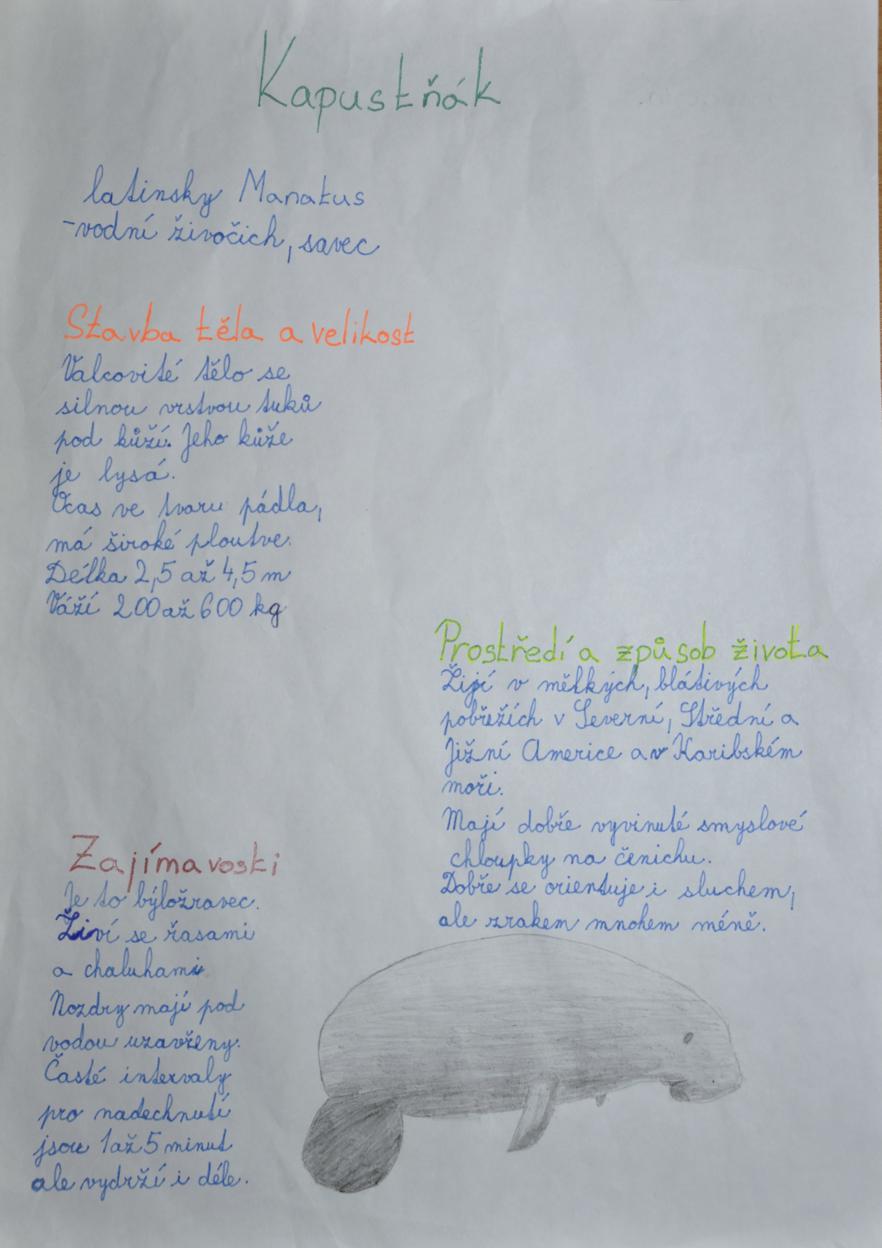 Kapustňák
latinsky Manatus
-vodní živočich, savec
Stavba těla a velikost
Válcovité tělo se
silnou vrstvou tuků
pod kůží. Jeho kůže
je lysá.
Ocas ve tvaru pádla,
má široké ploutve.
Délka 2,5 až 4,5 m
Váží 200 až 600 kg
Prostředí a způsob života
Žijí v mělkých, blátivých
pobřežích v Severní, Střední a
Jižní Americe a v Karibském
moři.
Mají dobře vyvinuté smyslové
chloupky na čenichu.
Dobře se orientuje i sluchem,
ale zrakem mnohem méně.
Zajímavosti
Je to býložravec.
Živí se řasami
a chaluhami
Nozdry mají pod
vodou uzavřeny.
Časté intervaly
pro nadechnutí
jsou 1 až 5 minut
ale vydrží i déle.